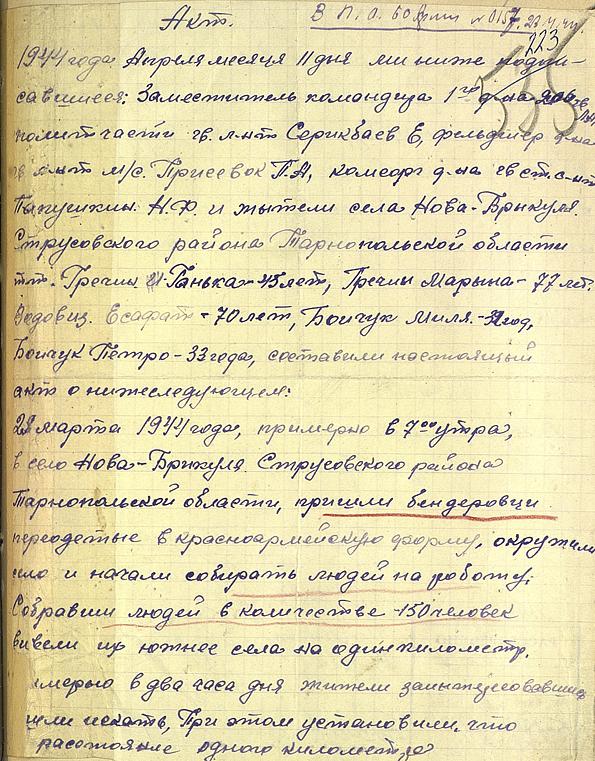 Акт.
В П.О. №0157, 23.4.44.
223
1944 года Апреля месяца 11 дня ми ниже подпи-
савшиеся: Заместитель командира 1го д-на
полит части гв. л-нт Серикбаев Е, фельдшер д-на
л-нт м/с. Присевок П.А, комсорг д-на гв ст. с-нт
Папушкин. Н.Ф. и жытели села Нова-Брыкуля.
Струсовского района Тарнопольской области
тт. Гречин Ганька-43 лет, Гречин Марына-77 лет.
Есафат-70 лет, Бойчук Миля.-32 год,
Бойчук Петро-33 года, составили настоящий
акт о нижеследующем:
28 марта 1944 года, примерно в 7 00 утра,
в село Нова-Брикуля. Струсовского района
Тарнопольской области, пришли бендеровци
переодетые в красноармейскую форму, окружили
село и начали собирать людей на роботу,
Собравши людей в количестве -150 человек
вивели их южнее села на один километр.
имерно в два часа дня жители
шли искать, При этом установили, что
растояние одного километра